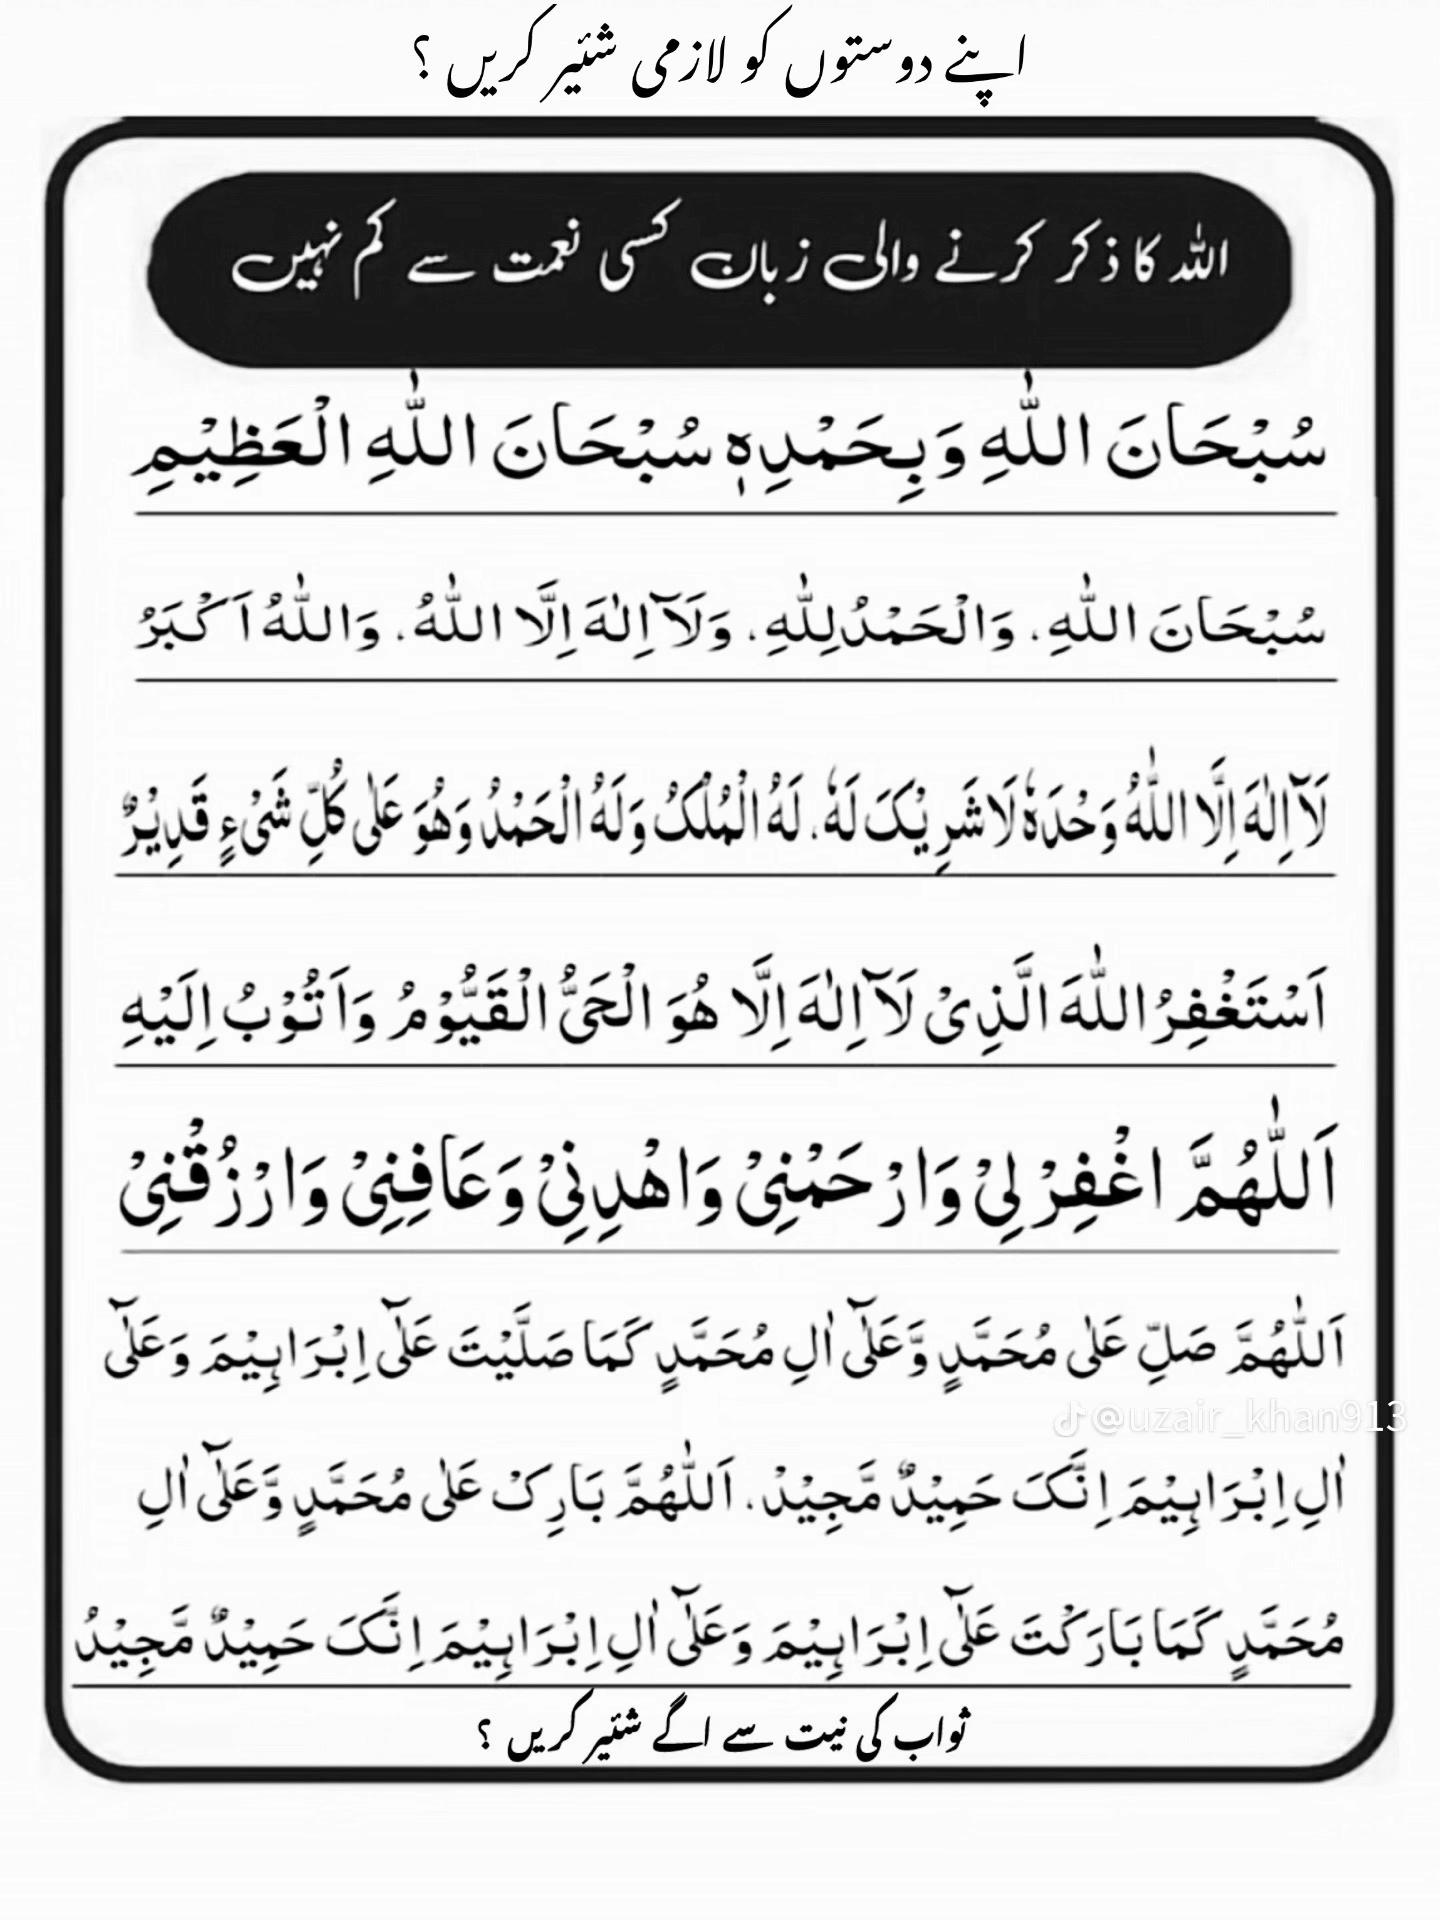 اپنے دوستوں کو لازمی شئیر کریں ؟
اللہ کا ذکر کرنے والی زبان کسی نعمت سے کم نہیں
سُبْحَانَ اللّٰهِ وَبِحَمْدِهٖ سُبْحَانَ اللّٰهِ الْعَظِيْمِ
سُبْحَانَ اللّٰهِ. وَالْحَمْدُلِلّٰهِ. وَلَآ اِلٰهَ اِلَّا اللّٰهُ. وَاللّٰهُ اَكْبَرُ
لَآ اِلٰهَ اِلَّا اللّٰهُ وَحْدَهٗ لَا شَرِيْكَ لَهٗ. لَهُ الْمُلْكُ وَلَهُ الْحَمْدُ وَهُوَ عَلٰى كُلِّ شَىْءٍ قَدِيْرٌ
اَسْتَغْفِرُ اللّٰهَ الَّذِىْ لَآ اِلٰهَ اِلَّا هُوَ الْحَىُّ الْقَيُّوْمُ وَاَتُوْبُ اِلَيْهِ
اَللّٰهُمَّ اغْفِرْ لِيْ وَارْحَمْنِيْ وَاهْدِنِيْ وَعَافِنِيْ وَارْزُقْنِيْ
اَللّٰهُمَّ صَلِّ عَلٰى مُحَمَّدٍ وَّعَلٰٓى اٰلِ مُحَمَّدٍ كَمَا صَلَّيْتَ عَلٰٓى اِبْرَاهِيْمَ وَعَلٰٓى
@uzair_khan913
اٰلِ اِبْرَاهِيْمَ اِنَّكَ حَمِيْدٌ مَّجِيْدٌ. اَللّٰهُمَّ بَارِكْ عَلٰى مُحَمَّدٍ وَّعَلٰٓى اٰلِ
مُحَمَّدٍ كَمَا بَارَكْتَ عَلٰٓى اِبْرَاهِيْمَ وَعَلٰٓى اٰلِ اِبْرَاهِيْمَ اِنَّكَ حَمِيْدٌ مَّجِيْدٌ
ثواب کی نیت سے اگے شئیر کریں ؟